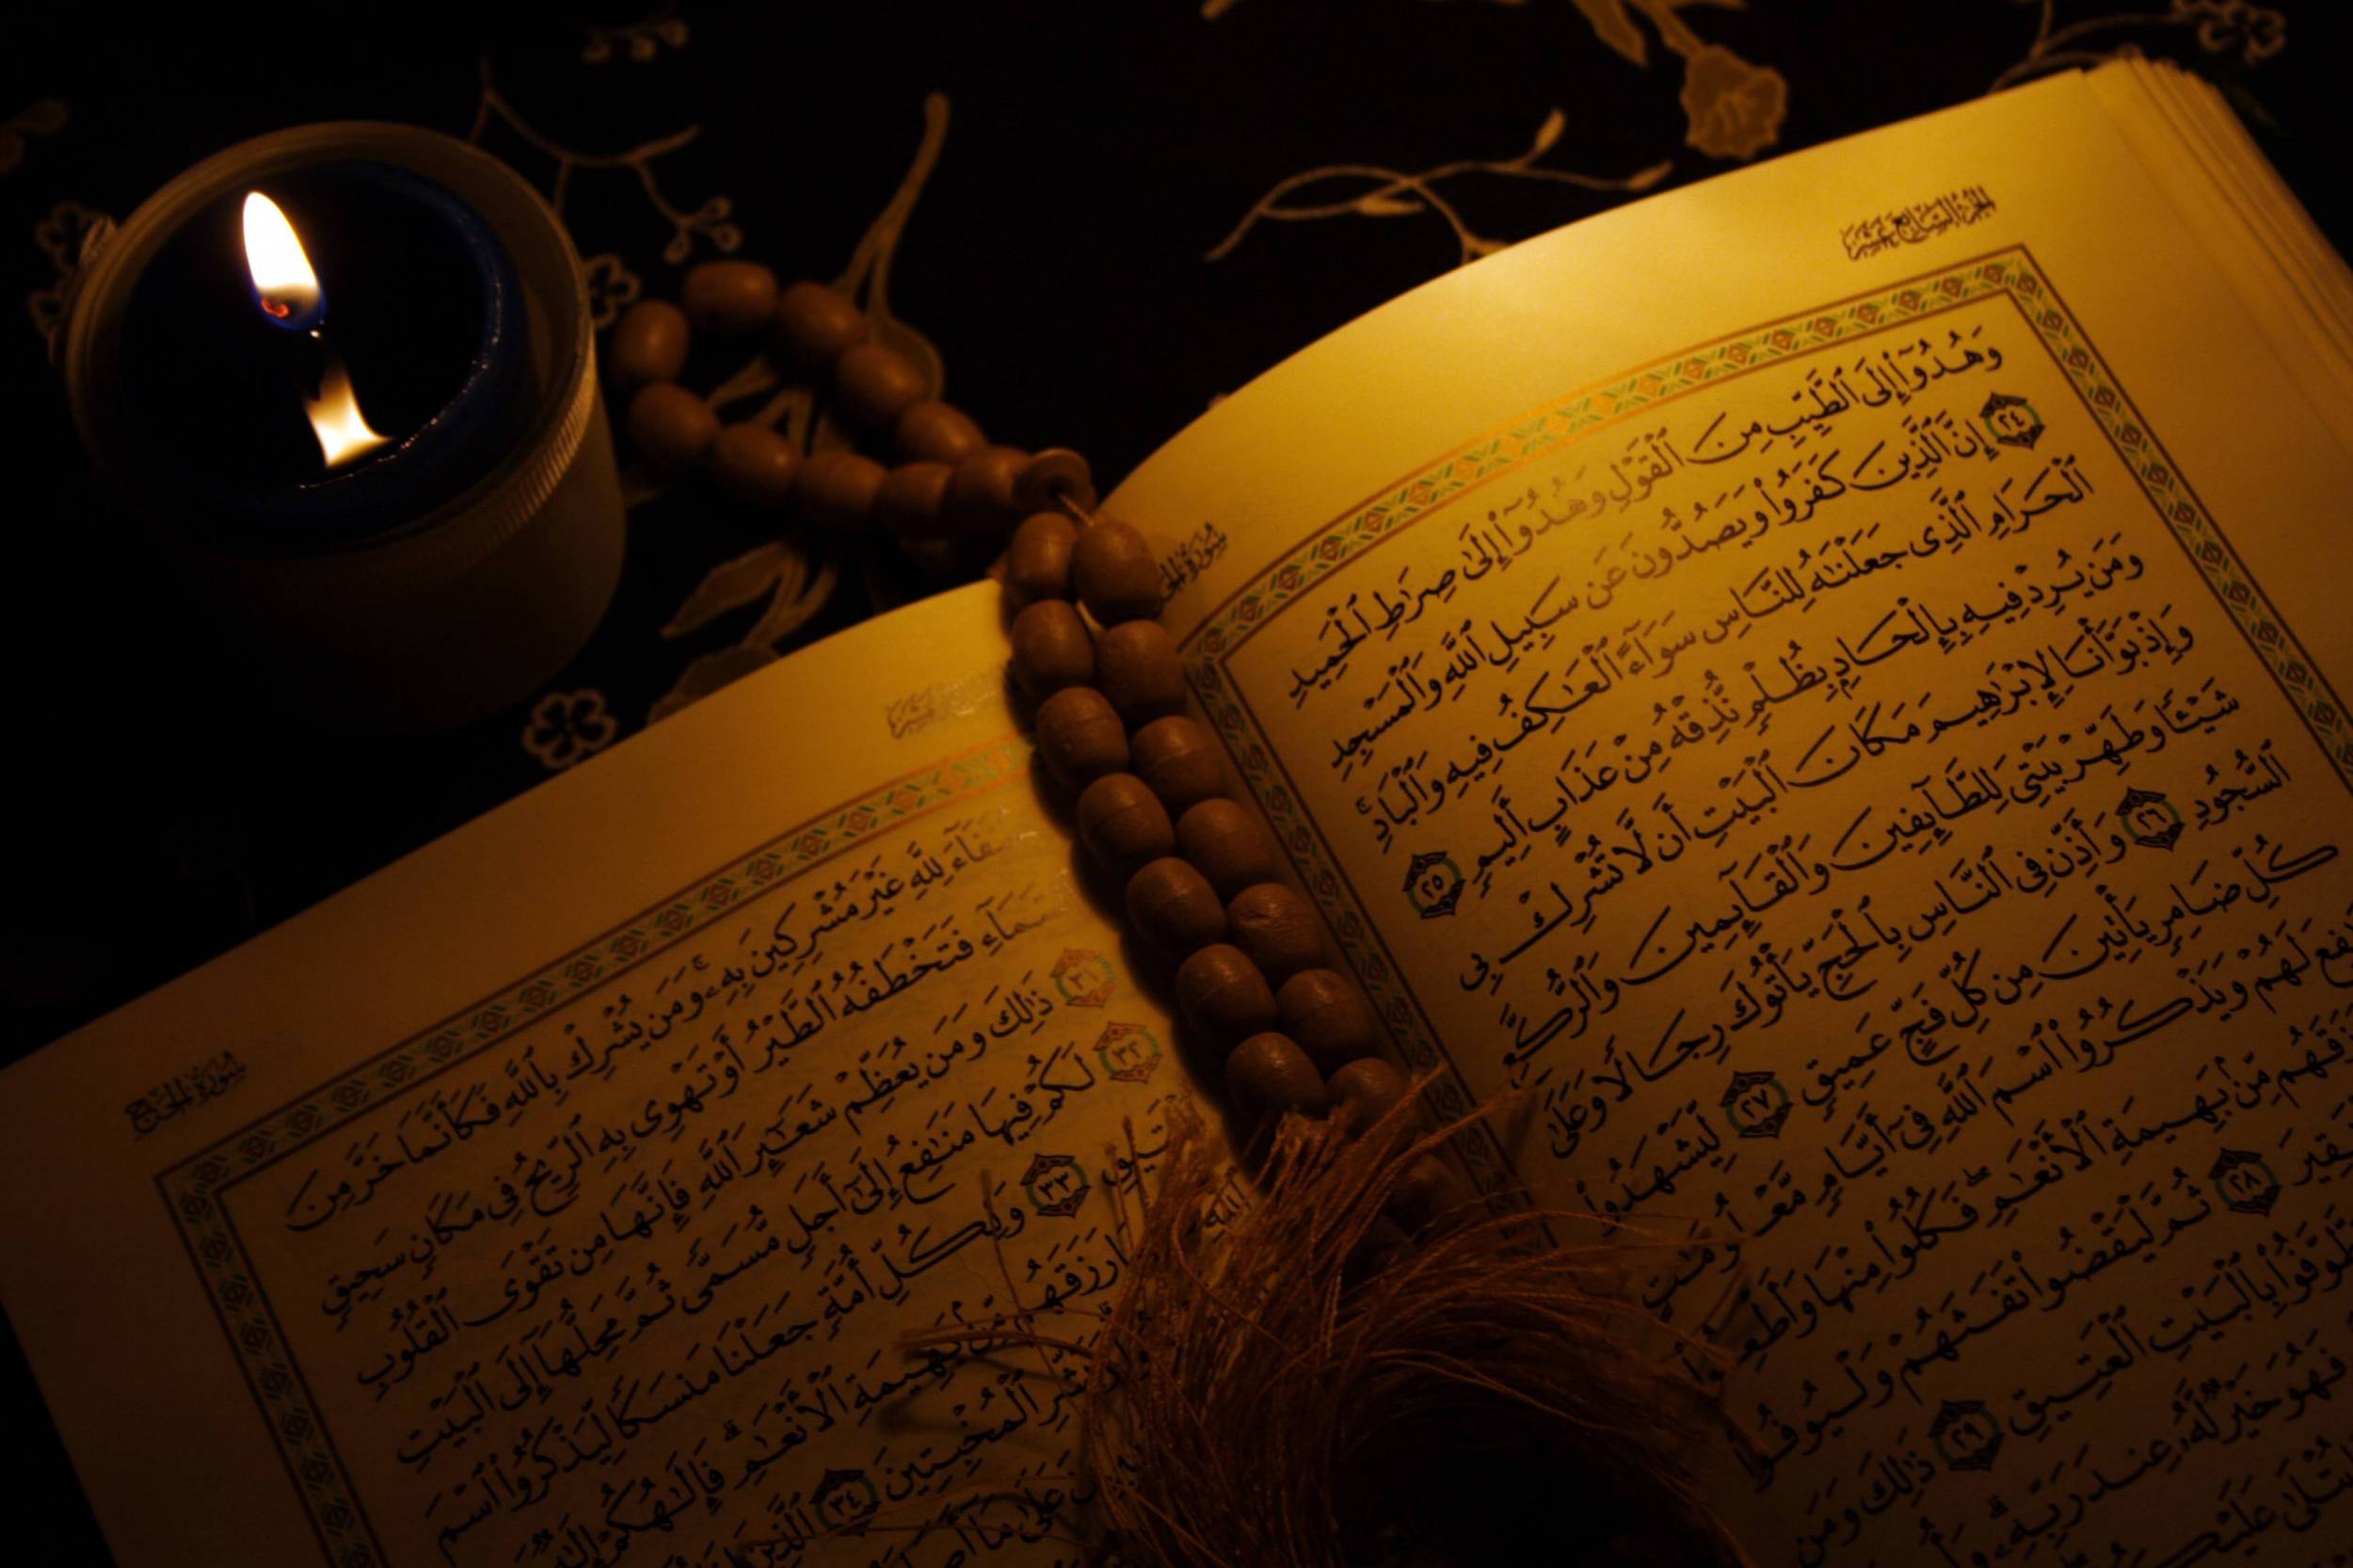 ٱلْجُزْءُ ٱلسَّابِعَ عَشَرَ
وَهُدُوٓا۟ إِلَى ٱلطَّيِّبِ مِنَ ٱلْقَوْلِ وَهُدُوٓا۟ إِلَىٰ صِرَٰطِ ٱلْحَمِيدِ
٢٤ إِنَّ ٱلَّذِينَ كَفَرُوا۟ وَيَصُدُّونَ عَن سَبِيلِ ٱللَّهِ وَٱلْمَسْجِدِ
ٱلْحَرَامِ ٱلَّذِى جَعَلْنَٰهُ لِلنَّاسِ سَوَآءً ٱلْعَٰكِفُ فِيهِ وَٱلْبَادِ ۚ
وَمَن يُرِدْ فِيهِ بِإِلْحَادٍۭ بِظُلْمٍ نُّذِقْهُ مِنْ عَذَابٍ أَلِيمٍ ٢٥
وَإِذْ بَوَّأْنَا لِإِبْرَٰهِيمَ مَكَانَ ٱلْبَيْتِ أَن لَّا تُشْرِكْ بِى
شَيْـًٔا وَطَهِّرْ بَيْتِىَ لِلطَّآئِفِينَ وَٱلْقَآئِمِينَ وَٱلرُّكَّعِ
ٱلسُّجُودِ ٢٦ وَأَذِّن فِى ٱلنَّاسِ بِٱلْحَجِّ يَأْتُوكَ رِجَالًا وَعَلَىٰ
كُلِّ ضَامِرٍ يَأْتِينَ مِن كُلِّ فَجٍّ عَمِيقٍ ٢٧ لِّيَشْهَدُوا۟
لَهُمْ وَيَذْكُرُوا۟ ٱسْمَ ٱللَّهِ فِىٓ أَيَّامٍ مَّعْلُومَٰتٍ
مِّنۢ بَهِيمَةِ ٱلْأَنْعَٰمِ ۖ فَكُلُوا۟ مِنْهَا وَأَطْعِمُوا۟
٢٨ ثُمَّ لْيَقْضُوا۟ تَفَثَهُمْ وَلْيُوفُوا۟
بِٱلْبَيْتِ ٱلْعَتِيقِ ٢٩ ذَٰلِكَ وَمَن
فَهُوَ خَيْرٌ لَّهُۥ عِندَ رَبِّهِۦ ۗ
سُورَةُ ٱلْحَجِّ
لِلَّهِ غَيْرَ مُشْرِكِينَ بِهِۦ ۚ وَمَن يُشْرِكْ بِٱللَّهِ فَكَأَنَّمَا خَرَّ مِنَ
فَتَخْطَفُهُ ٱلطَّيْرُ أَوْ تَهْوِى بِهِ ٱلرِّيحُ فِى مَكَانٍ سَحِيقٍ
٣١ ذَٰلِكَ وَمَن يُعَظِّمْ شَعَٰٓئِرَ ٱللَّهِ فَإِنَّهَا مِن تَقْوَى ٱلْقُلُوبِ
٣٢ لَكُمْ فِيهَا مَنَٰفِعُ إِلَىٰٓ أَجَلٍ مُّسَمًّى ثُمَّ مَحِلُّهَآ إِلَى ٱلْبَيْتِ
٣٣ وَلِكُلِّ أُمَّةٍ جَعَلْنَا مَنسَكًا لِّيَذْكُرُوا۟ ٱسْمَ
رَزَقَهُم مِّنۢ بَهِيمَةِ ٱلْأَنْعَٰمِ ۗ فَإِلَٰهُكُمْ
ٱلْمُخْبِتِينَ ٣٤ ٱلَّذِينَ
عَلَىٰ مَآ